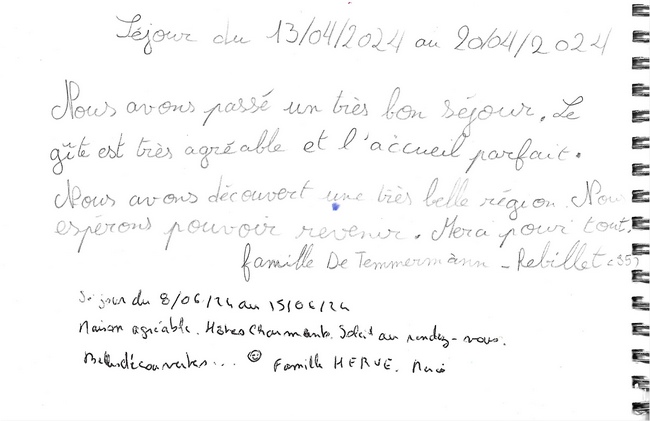 Séjour du 13/04/2024 au 20/04/2024
Nous avons passé un très bon séjour. Le
gîte est très agréable et l'accueil parfait.
Nous avons découvert une très belle région. Nous
espérons pouvoir revenir. Merci pour tout.
famille De Temmermann - Rebillet (35)
Séjour du 8/06/24 au 15/06/24
Maison agréable. Hôtes Charmants. Soleil au rendez-vous.
Belles découvertes... ☺ Famille HERVE. Merci